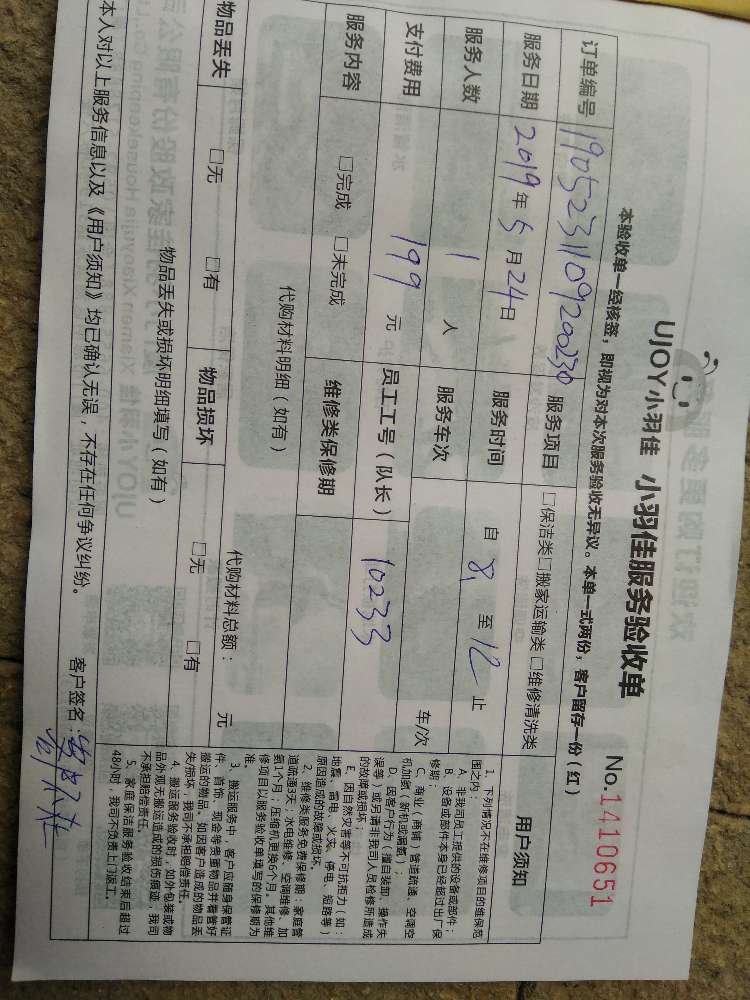 UJOY小羽佳 小羽佳服务验收单
No.1410651
本验收单一经核签，即视为对本次服务验收无异议。本单一式两份，客户留存一份（红）
订单编号 1905231109200230 服务项目 □保洁类□搬家运输类 □维修清洗类 用户须知
服务日期 2019年5月24日 服务时间 自 8 至 12 止
服务人数 1 人 服务车次 车/次
支付费用 199 元 员工工号（队长） 10233
服务内容 □完成 □未完成 维修类保修期
代购材料明细（如有） 代购材料总额： 元
物品丢失 □无 □有 物品损坏 □无 □有
物品丢失或损坏明细填写（如有）
1、下列情况不在维修项目的维保范
围之内：
A、非我司员工提供的设备或部件；
B、设备或部件本身已经超过出厂保
修期；
C、商业（商铺）管道疏通、空调空
机加氨（新机或漏氨）；
D、因客户行为（擅自装卸、操作失
误等）或另请非我司人员检修所造成
的故障或损坏；
E、因自然灾害等不可抗拒力（如：
地震、高电、火灾、停电、短路等）
原因造成的故障或损坏。
2、维修类服务免费保修期：家庭管
道疏通3天；水电维修、空调维修、加
氨1个月；压缩机更换6个月。其他维
修项目以服务验收单填写的保修期为
准。
3、搬运服务中，客户应随身保管证
件、首饰、现金等贵重物品并看管好
搬运的物品。如因客户造成的物品丢
失/损坏，我司不承担赔偿责任。
4、搬运服务验收时，如外包装或物
品外观无搬运造成的损伤痕迹，我司
不承担赔偿责任。
5、家庭保洁服务验收结束后超过
48小时，我司不负责上门返工。
本人对以上服务信息以及《用户须知》均已确认无误，不存在任何争议纠纷。 客户签名：